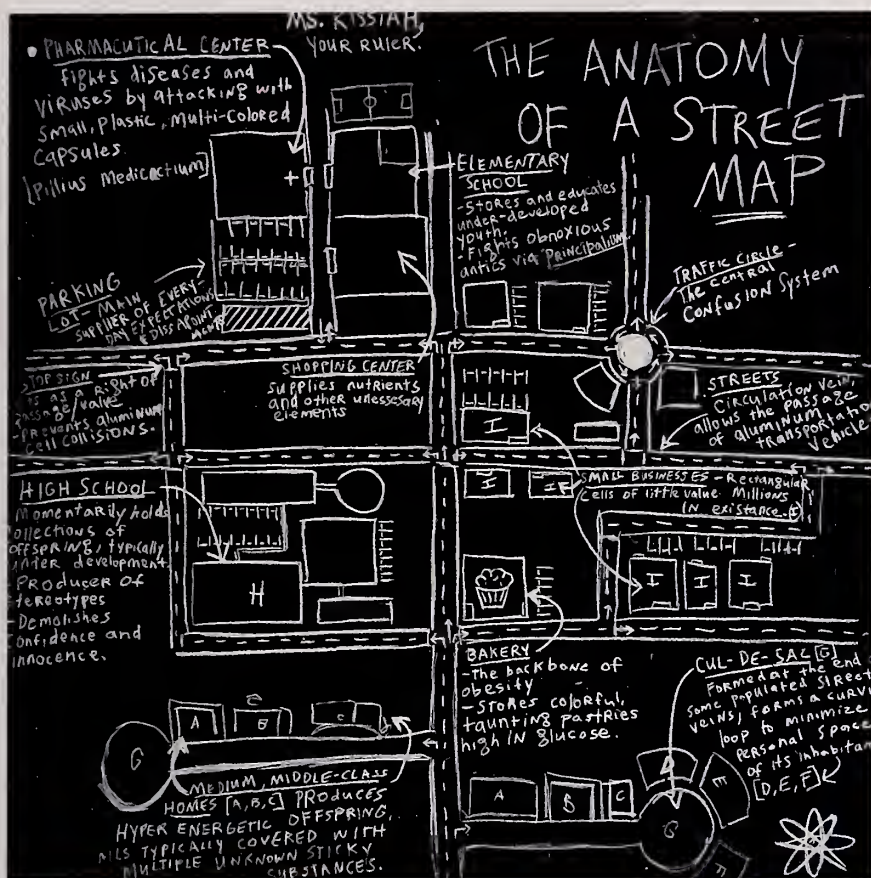 MS. KISSIAH,
YOUR RULER.
THE ANATOMY
OF A STREET
MAP
• PHARMACUTICAL CENTER
fights diseases and
viruses by attacking with
small, plastic, multi-colored
capsules
[Pillius Medicactium]
ELEMENTARY
SCHOOL
-Stores and educates
under-developed
youth.
-Fights obnoxious
antics via Principalium
TRAFFIC CIRCLE -
The central
Confusion System
PARKING
LOT- MAIN
SUPPLIER OF EVERY-
DAY EXPECTATIONS
& DISSAPOINT
MENTS
SHOPPING CENTER
supplies nutrients
and other unessesary
elements
TOP SIGN
as a right of
passage/value
-prevents aluminum
cell collisions.
STREETS
Circulation vein,
allows the passage
of aluminum
transportation
vehicle
I
SMALL BUSINESSES - Rectangular
cells of little value. Millions
in existance. I
I
I
I
I
I
HIGH SCHOOL
Momentarily holds
ollections of
offspring, typically
under development
-Producer of
stereotypes
-Demolishes
confidence and
innocence.
H
BAKERY
-The backbone of
obesity
-Stores colorful,
taunting pastries
high in glucose.
CUL-DE-SAC [G]
Formed at the end
some populated street
veins, forms a curvi
loop to minimize
personal space
of its inhabitan
[D, E, F]
A
B
C
G
MEDIUM, MIDDLE-CLASS
HOMES [A,B,C] PRODUCES
HYPER ENERGETIC OFFSPRING,
TYPICALLY COVERED WITH
MULTIPLE UNKNOWN STICKY
SUBSTANCES.
A
B
C
D
E
F
G